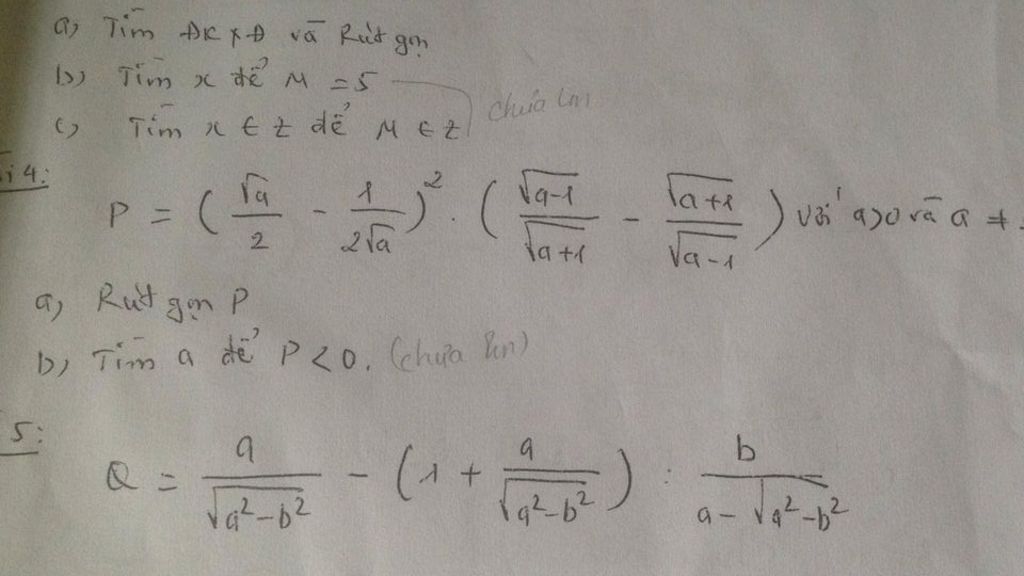 a) Tìm ĐKXĐ và Rút gọn
b) Tìm x để M = 5
chưa làm
c) Tìm x ∈ Z để M ∈ Z
i 4:
P = ( √a / 2 - 1 / 2√a )² . ( √a-1 / √a+1 - √a+1 / √a-1 ) với a>0 và a ≠
a) Rút gọn P
b) Tìm a để P < 0. (chưa làm)
5:
Q = a / √a²-b² - ( 1 + a / √a²-b² ) : b / a - √a²-b²